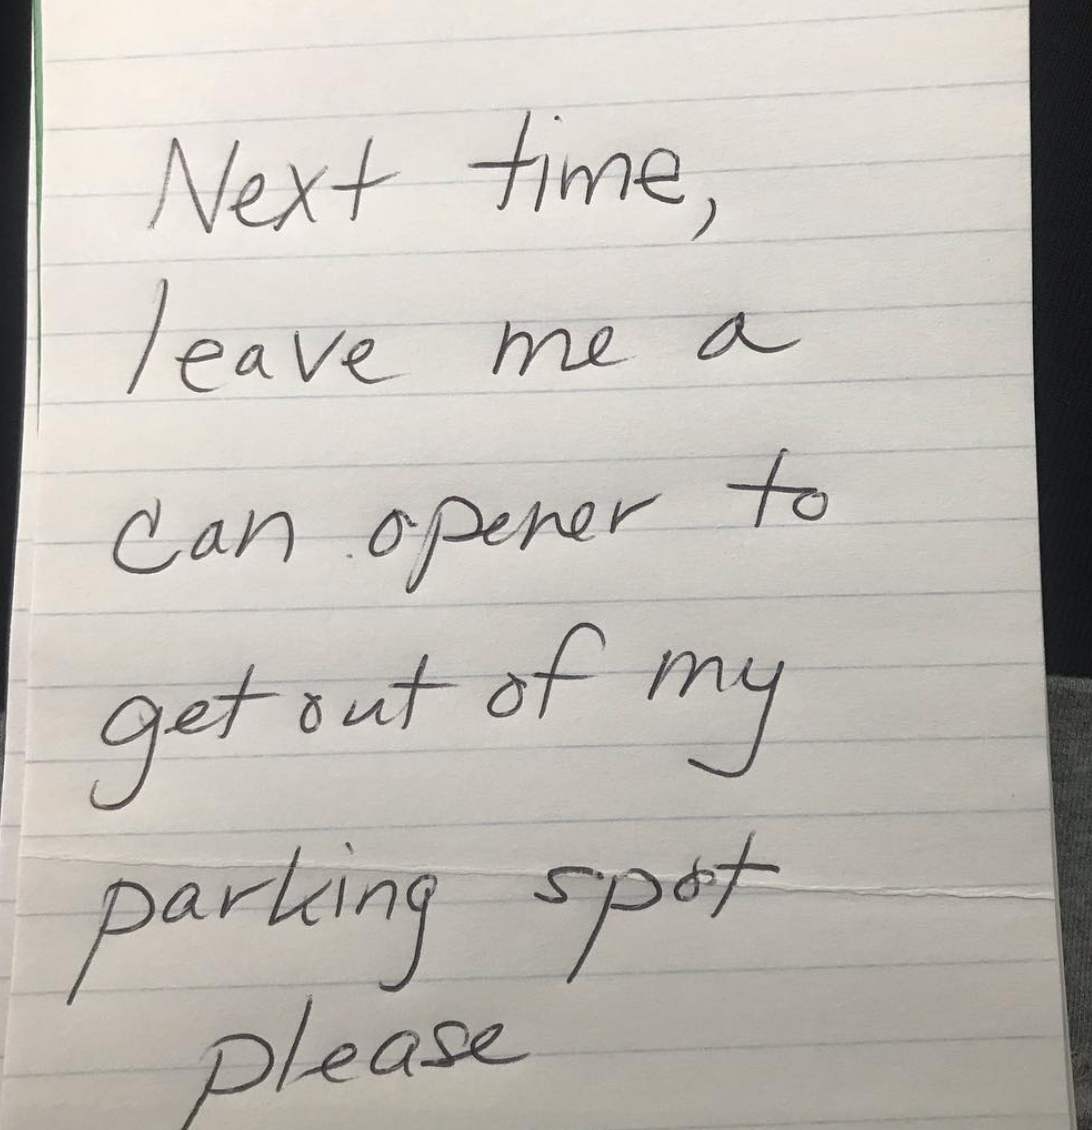 Next time,
leave me a
can opener to
get out of my
parking spot
please